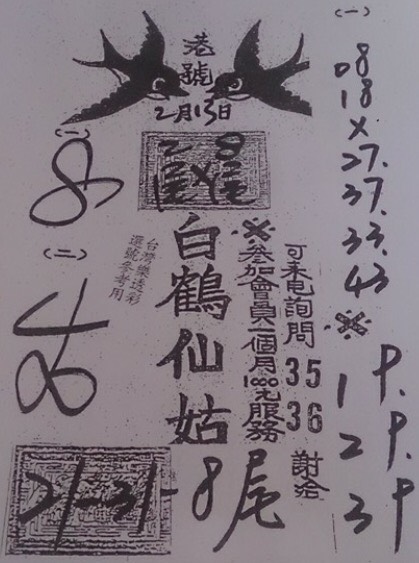 港號
2月13日
(一)
8
2 8
白鶴仙姑
台灣樂透彩
選號參考用
(二)
※參加會員一個月1000元服務
可來电詢問 35 36 謝洽
21-31-8尾
(一)
08
18
X
27.
37.
33.
43
※
1P.
2P.
3P